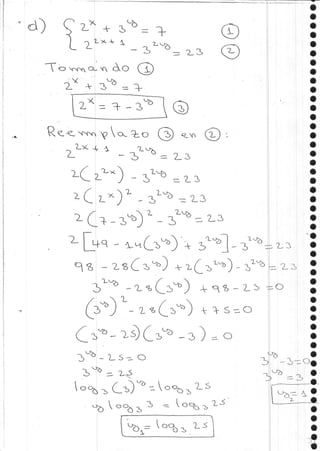 d) { 2^x + 3^y = 7 ①
2^{2x+1} - 3^{2y} = 23 ②
Tomando ①
2^x + 3^y = 7
2^x = 7 - 3^y ③
Reemplazo ③ en ②:
2^{2x+1} - 3^{2y} = 23
2(2^{2x}) - 3^{2y} = 23
2(2^x)^2 - 3^{2y} = 23
2(7-3^y)^2 - 3^{2y} = 23
2[49 - 14(3^y) + 3^{2y}] - 3^{2y} = 23
98 - 28(3^y) + 2(3^{2y}) - 3^{2y} = 23
3^{2y} - 28(3^y) + 98 - 23 = 0
(3^y)^2 - 28(3^y) + 75 = 0
(3^y - 25)(3^y - 3) = 0
3^y - 25 = 0 3^y - 3 = 0
3^y = 25 3^y = 3
log_3(3)^y = log_3 25 y_2 = 1
y log_3 3 = log_3 25
y_1 = log_3 25